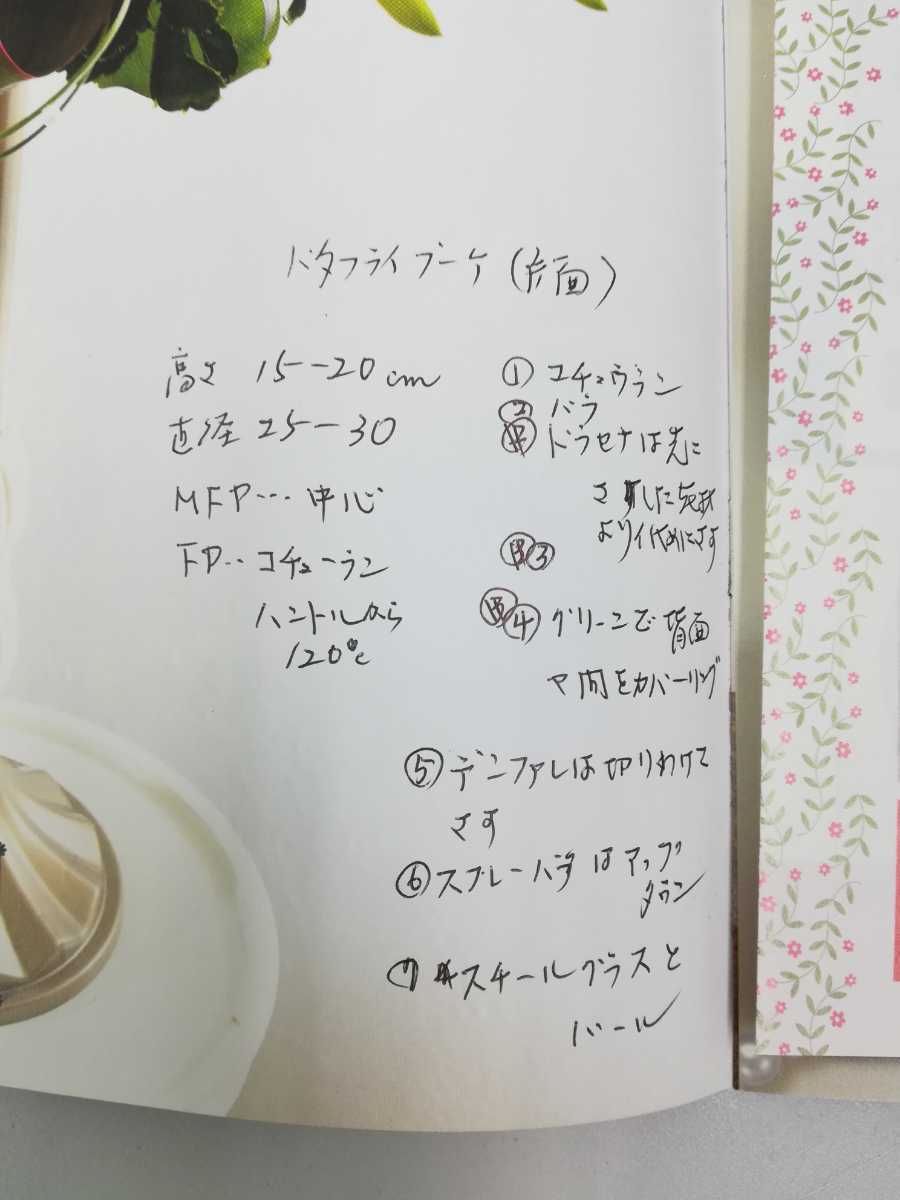 バタフライブーケ(片面)
高さ 15-20cm
直径 25-30
MFP… 中心
FP‥コチョーラン
ハンドルから
120℃
① コチョウラン
② バラ
ドラセナは先に
さした
より低めにさす
③
④ グリーンで背面
や間をカバーリング
⑤ デンファレは切りわけて
さす
⑥ スプレーバラはアップ
ダウン
⑦ スチールグラスと
パール